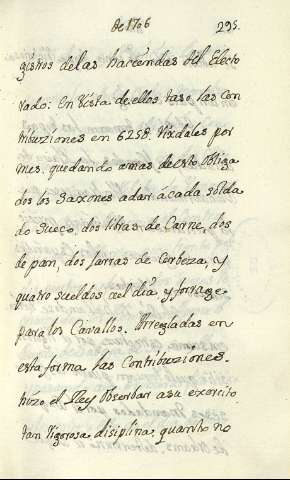 de 1706 295.
gistros de las haciendas del Electo
rado: En vista de ellos taso las con
tribuziones en 6258. Rixdales por
mes, quedando amas de esto obliga
dos los Saxones a dar â cada solda
do Sueco, dos libras de Carne, dos
de pan, dos Jarras de Corbeza, y
quatro sueldos al dia, y forrage
para los Cavallos. Arregladas en
esta forma las Contribuziones.
hizo el Rey observar a su exercito
tan vigorosa disiplina, quanto no